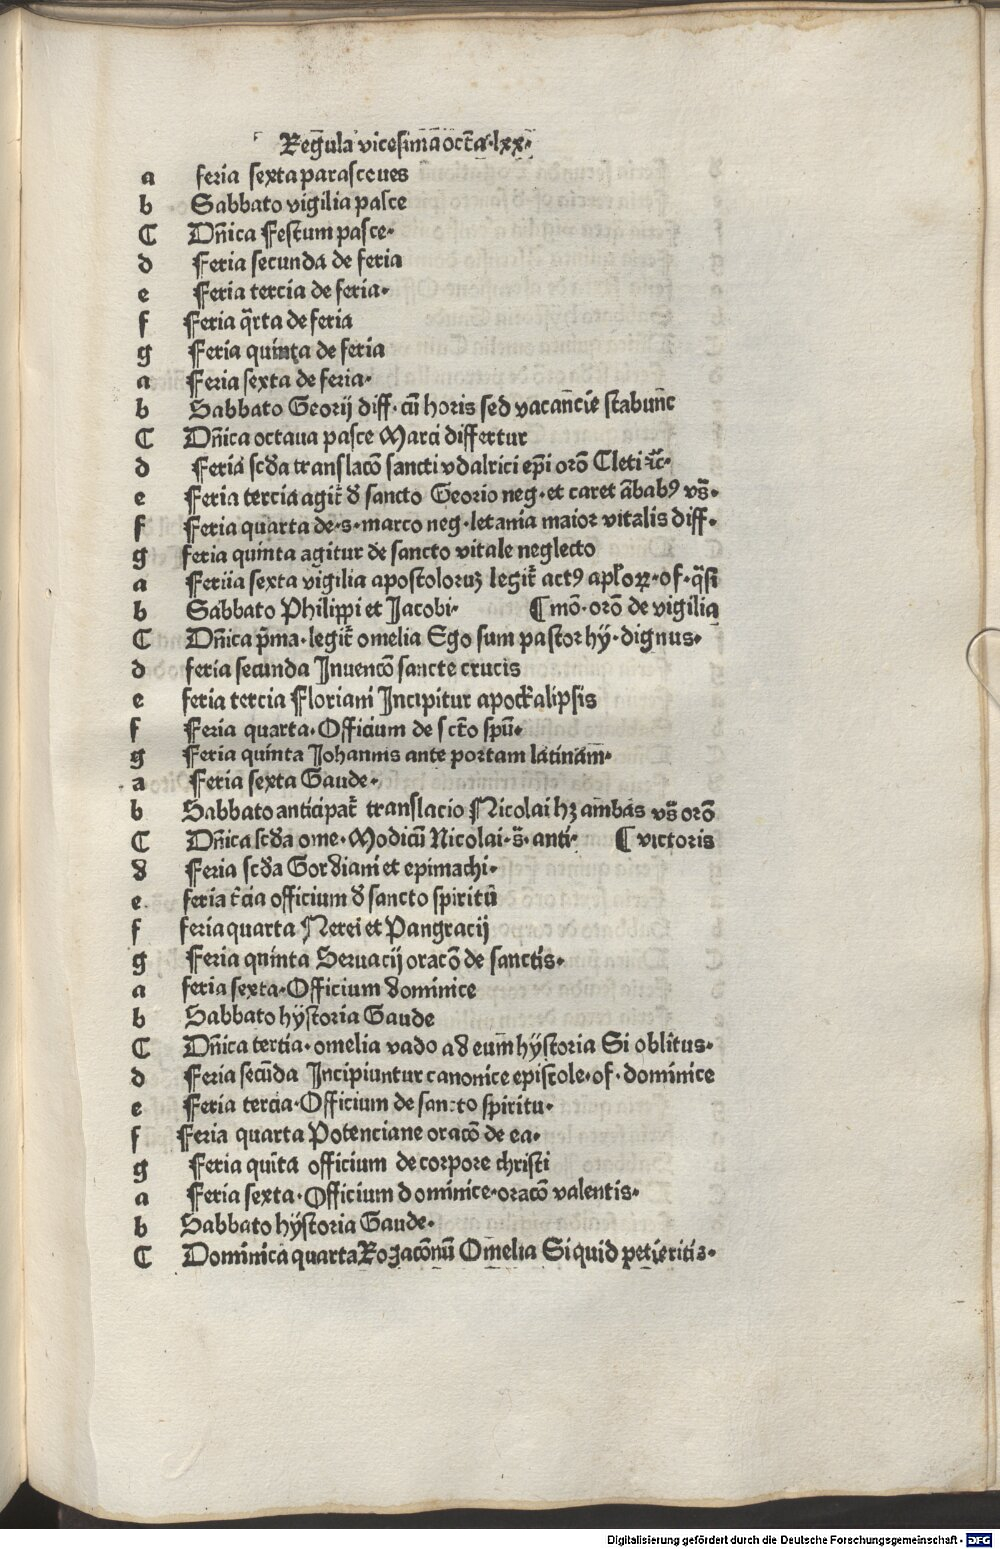 Regula vicesima octa·lxx·
a feria sexta parasceues
b Sabbato vigilia pasce
C Dñica Festum pasce·
d Feria secunda de feria
e Feria tercia de feria·
f Feria q̄rta de feria
g Feria quinta de feria
a Feria sexta de feria·
b Sabbato Georij diff·cū horis sed vacanc̄ie stabunc̄
C Dñica octaua pasce Marci differtur
d Feria scd̄a translacōn sancti vdalrici ep̄i orōn Cleti ꝛc̄·
e Feria tercia agit̄ d̄ sancto Georio neg·et caret āb̄abꝰ vs̄·
f Feria quarta de·s·marco neg·letania maior vitalis diff·
g feria quinta agitur de sancto vitale neglecto
a Feriia sexta vigilia apostoloruꝫ legit̄ actꝰ apl̄oꝝ·of·q̄si
b Sabbato Philippi et Jacobi· ¶mō·orō de vigilia
C Dñica p̄ma·legit̄ omelia Ego sum pastor hy·dignus·
d feria secunda Inuencō sancte crucis
e feria tercia Floriani Incipitur apoc̄kalipsis
f Feria quarta·Officium de sc̄to spū·
g Feria quinta Johannis ante portam latinam̄·
a Feria sexta Gaude·
b Sabbato anticipat̄ translacio Nicolai hꝫ am̄bas vs̄ orō
C Dñica scd̄a ome·Modicū Nicolai·s̄·anti· ¶victoris
d Feria scd̄a Gordiani et epimachi·
e feria t̄cia officium d̄ sancto spiritū
f feria quarta Nerei et Pangracij
g Feria quinta Seruacij oracō de sanctis·
a feria sexta·Officium dominice
b Sabbato hÿstoria Gaude
C Dñica tertia·omelia vado ad eum̄ hÿstoria Si oblitus·
d Feria secūda Incipiuntur canonice epistole·of·dominice
e Feria tercia·Officium de sancto spiritu·
f Feria quarta Potenciane oracō de ea·
g Feria quīta officium de corpore christi
a Feria sexta·Officium dominice·oracō valentis·
b Sabbato hÿstoria Gaude·
C Dominica quarta Rogacōnū Omelia Si quid petieritis·
Digitalisierung gefördert durch die Deutsche Forschungsgemeinschaft - DFG